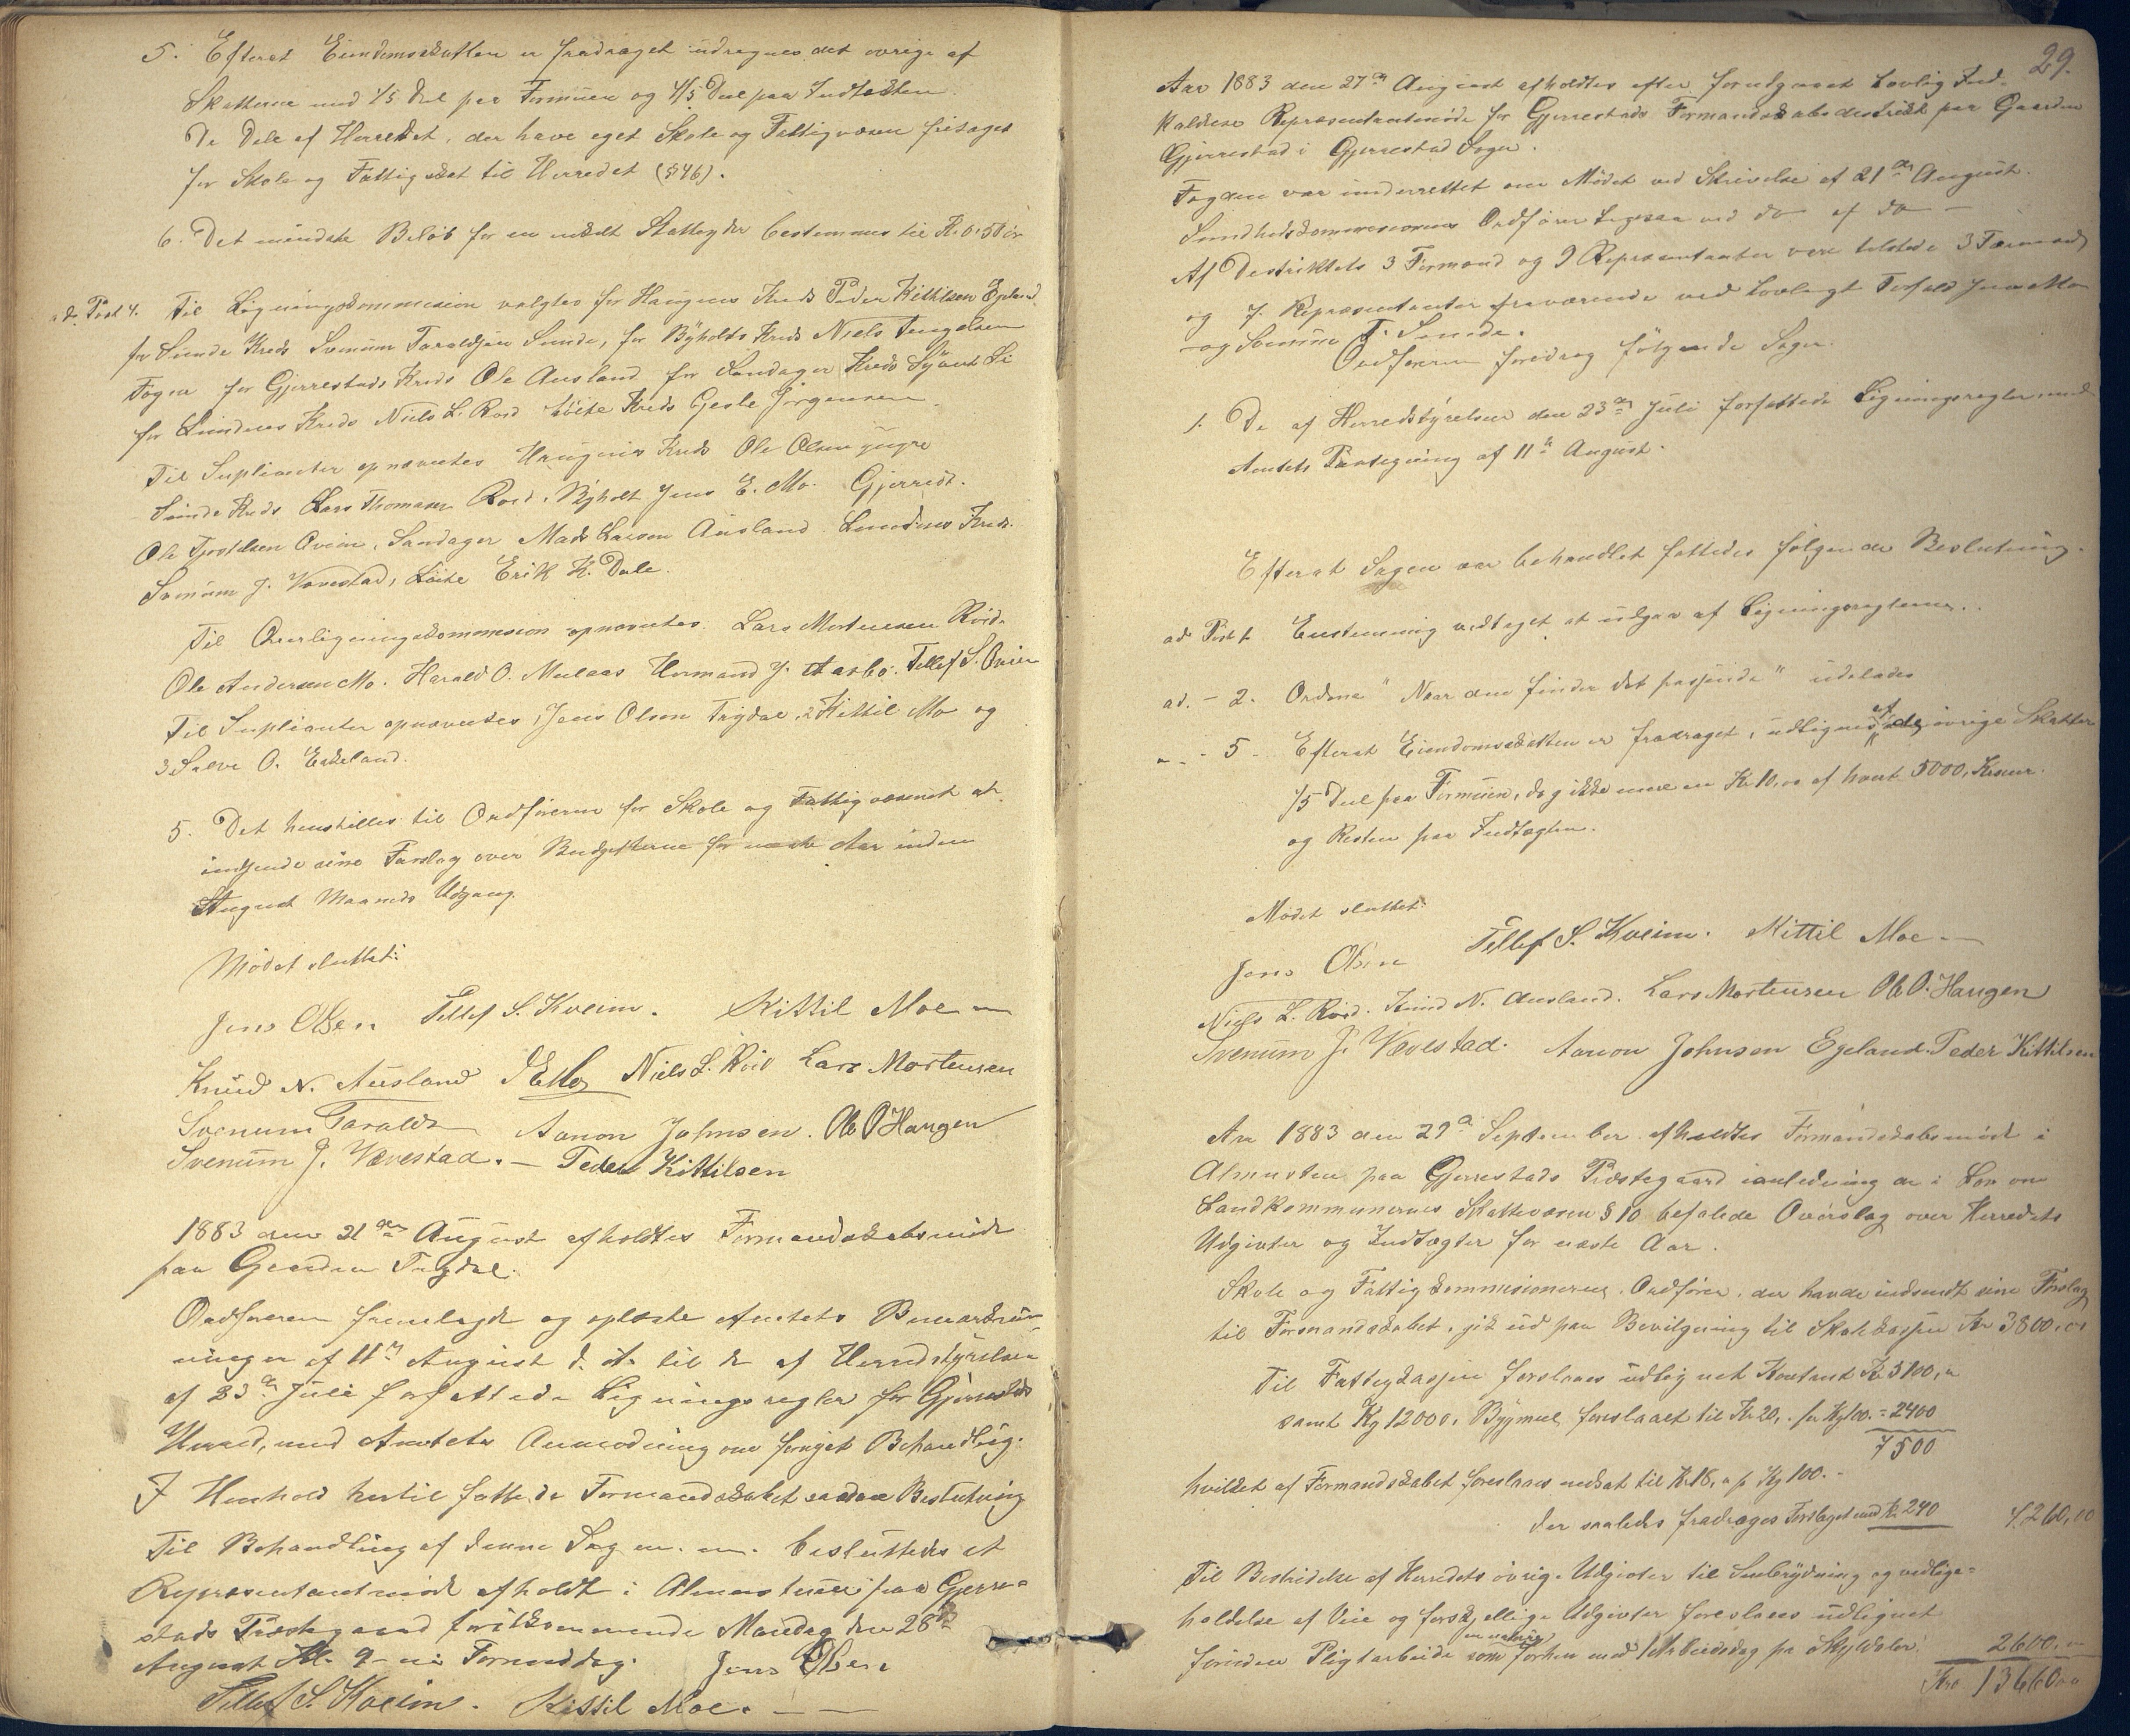 5. Efterat Eiendomsskatten er fradraget udregnes det øvrige af
Skatterne med 1/5 Del paa Formuen og 4/5 Del paa Indtægten.
De Dele af Herredet, der have eget Skole og Fattigvæsen fritages
for Skole og Fattigskat til Herredet (§46).
6. Det mindste Beløb for en enkelt Skatteyder bestemmes til Kr. 0.50 ør
ad Post 4. Til Ligningskommission valgtes for Haugens Kreds Peder Kittilsen Egeland
for Sunde Kreds Svenum Taraldsen Sunde, for Byholts Kreds Niels Tengelsen
for Gjerrestads Kreds Ole Ausland for Sandager Kreds
for Lindens Kreds Niels L. Roed Løite Kreds Gesle Jørgensen.
Til Suplianter opnævntes Haugens Kreds Ole Olsen yngre
Sunde Kreds Lars Thomasen Roed, Byholt Jens E. Mo. Gjerrest.
Ole Tjostelsen Qveim, Sandager Mads Larsen Ausland Lundens Kreds.
Svenum J. Vævestad, Løite Erik K. Dale.
Til Overligningskommission opnævntes Lars Mortensen Röid.
Ole Andersen Mo. Harald O. Mulaas Hermand J. Aasbø. Tellef S. Qveim
Til Suplianter opnævntes 1 Jens Olsen Trydal, 2 Kittil Mo og
3 Salve O. Eskeland.
5. Det henstilles til Ordførerne for Skole og Fattigvæsenet at
indsende sine Forslag over Budgetterne for næste Aar inden
August Maaneds Udgang.
Mødet sluttet:
Jens Olsen Tellef S. Kveim. Kittil Moe
Knud N. Ausland JEMo Niels L. Röid Lars Mortensen
Svenum Taralds Aanon Johnsen. Ole O Haugen
Svenum J. Vævestad. Peder Kittilsen
1883 den 21de August afholdtes Formandskabsmøde
paa Gaarden Trydal.
Ordføreren fremlagde og oplæste Amtets Bemærkninger
af 11te August d. A. til de af Herredstyrelsen
af 23de Juli forfattede Ligningsregler for Gjerrestads
Herred, med Amtets Anmodning om fornyet Behandling.
I Henhold hertil fattede Formandskabet saadan Beslutning
Til Behandling af denne Sag m. m. besluttedes et
Repræsentantmøde afholdt i Almustuen paa Gjerrestads
Præstegaard førstkommende Mandag den 28de
August Kl. 9 Formiddag. Jens Olsen
Tellef S. Kveim. Kittil Moe.
29.
Aar 1883 den 27de August afholdtes efter forudgaaet Lovlig Indkaldelse
Repræsentantmøde for Gjerrestads Formandskabsdestrikt paa Gaarden
Gjerrestad i Gjerrestad Sogn.
Fogden var underrettet om Mødet ved Skrivelse af 21de August.
Sundhedskommissionens Ordfører Ligesaa ved do af do
Af Destriktets 3 Formænd og 9 Repræsentanter vare tilstede 3 Formænd
og 7 Repræsentanter fraværende ved Lovlegt Forfald Jens Mo
og Svenum T. Sunde.
Ordføreren foredrog følgende Sager.
1. De af Herredstyrelsen den 23de Juli forfattede Ligningsregler med
Amtets Paategning af 11te August.
Efterat Sagen var behandlet fattedes følgende Beslutning.
ad Post 1. Enstemmig vedtaget at udgaa af Ligningsreglerne.
ad. - 2. Ordene "Naar den finder det passende" udelades
" - 5 - Efterat Eiendomsskatten er fradraget, udlignes af de øvrige Skatter
1/5 Del paa Formuen, dog ikke mere en Kr. 10,00 af hvert 5000, Kroner.
og Resten paa Indtægten.
Mødet sluttet:
Jens Olsen Tellef S. Kveim. Kittil Moe
Niels L. Röid. Knud N. Ausland. Lars Mortensen Ole O. Haugen
Svenum J. Vævestad. Aanon Johnsen Egeland. Peder Kittilsen
Aar 1883 den 29de September afholdtes Formandskabsmøde i
Almustuen paa Gjerrestads Præstegaard i anledning den i Lov om
Landkommunernes Skattevæsen §10 befalede Overslag over Herredets
Udgivter og Indtægter for næste Aar.
Skole og Fattigkommissionernes Ordfører, der havde indsendt sine Forslag
til Formandskabet, gik ud paa Bevilgning til Skolekassen Kr 3800,00
Til Fattigkassen foreslaaes udlignet Kontant Kr 5100,
samt Kg 12000, Bygmel, foreslaaet til Kr 20, pr Kg 100. = 2400
7500
hvilket af Formandskabet foreslaaes nedsat til Kr. 18, pr Kg 100. -
der saaledes fradrages Forslaget med Kr. 240 7.260,00
Til Bestridelse af Herredets øvrige Udgivter til Snebrydning og vedligeholdelse
af Veie og forskjellige Udgivter foreslaaes udlignet
foruden Pligtarbeide som forhen med 1 Arbeidsdag pr Skyldaler. 2600,
Kro 13660,00